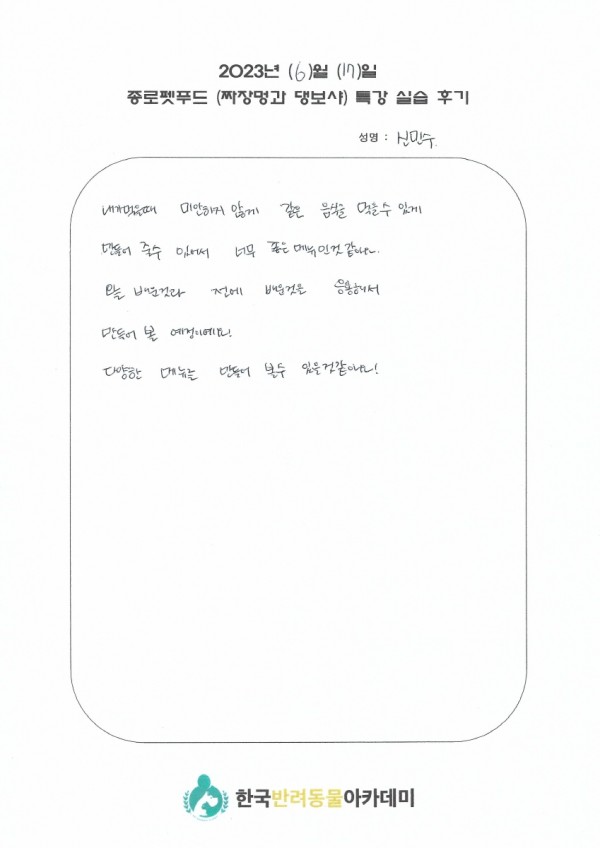 2023년 (6)월 (17)일
종로펫푸드 (짜장멍과 댕보샤) 특강 실습 후기
성명 : 신민수.
내가먹을때 미안하지 않게 같은 음식을 먹을수 있게
만들어 줄수 있어서 너무 좋은메뉴인것 같아요.
오늘 배운것과 전에 배운것을 응용해서
만들어 볼 예정이에요!
다양한 메뉴를 만들어 볼수 있을것같아요!
한국반려동물아카데미